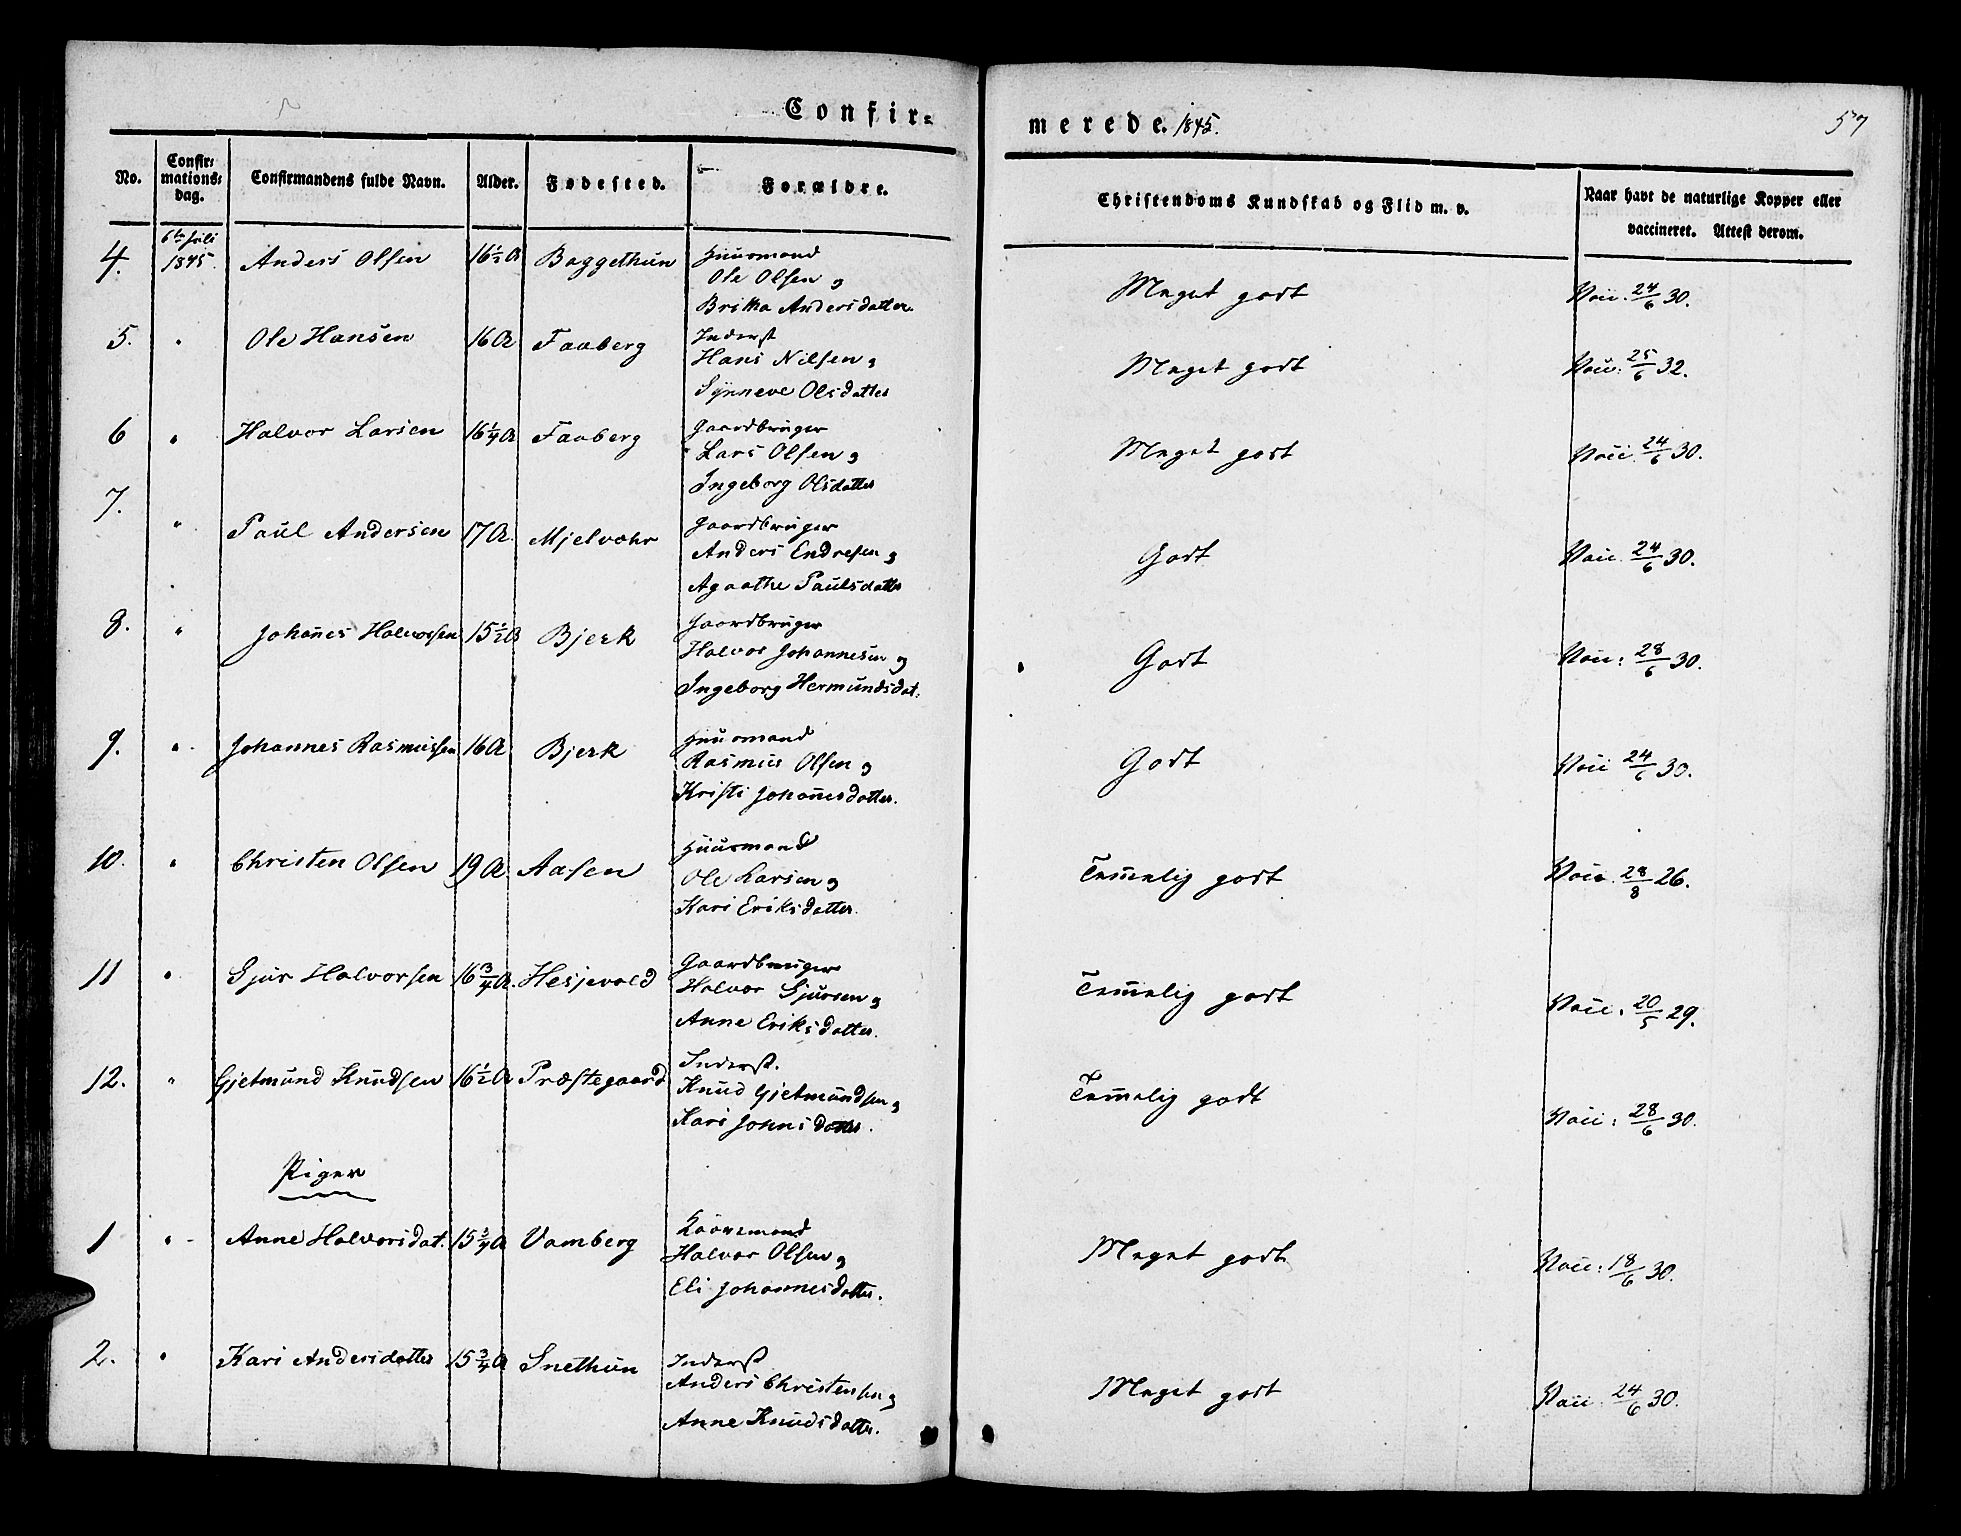 Confir=
merede. 1845.
57
No.
Confir=
mations=
dag.
Confirmandens fulde Navn.
Alder.
Fødested.
Forældre.
Christendoms Kundskab og Flid m. v.
Naar havt de naturlige Kopper eller
vaccineret. Attest derom.
4. 6te Juli 1845. Anders Olsen 16½ A Baggethun Huusmand
Ole Olsen og
Britha Andersdatter.
Meget godt Vacc. 24/6 30.
5. " Ole Hansen 16 A Faaberg Inderst
Hans Nilsen og
Synneve Olsdatter
Meget godt Vacc: 25/6 32.
6 " Halvor Larsen 16¼ A Faaberg Gaardbruger
Lars Olsen og
Ingeborg Olsdatter
Meget godt Vacc. 24/6 30.
7. " Paul Andersen 17 A. Mjelvæhr Gaardbruger
Anders Endresen og
Agaathe Paulsdatter
Godt Vacc. 24/6 30.
8. " Johan̄es Halvorsen 15½ A Bjerk Gaardbruger
Halvor Johannesen og
Ingeborg Hermundsdat.
Godt Vacc: 28/6 30.
9. " Johannes Rasmussen 16 A Bjerk Huusmand
Rasmus Olsen og
Kristi Johan̄esdatter.
Godt Vacc 24/6 30.
10. " Christen Olsen 19 A. Aasen Huusmand
Ole Larsen og
Kari Eriksdatter.
Tem̄elig godt Vacc. 28/8 26.
11 " Sjur Halvorsen 16¾ A. Hesjevold Gaardbruger
Halvor Sjursen og
Anne Eriksdatter.
Tem̄elig godt Vacc. 20/5 29.
12. " Gjetmund Knudsen 16½ A Præstegaard Inderst.
Knud Gjetmundsen og
Kari Johnsdatter.
Tem̄elig godt Vacc: 28/6 30.
Piger
1 " Anne Halvorsdat. 15¾ A Vamberg
Halvor Olsen og
Eli Johannesdatter.
Meget godt Vacc: 18/6 30.
2. " Kari Andersdatter 15¾ A Snethun Inderst
Anders Christensen og
Anne Knudsdatter.
Meget godt Vacc. 24/6 30.